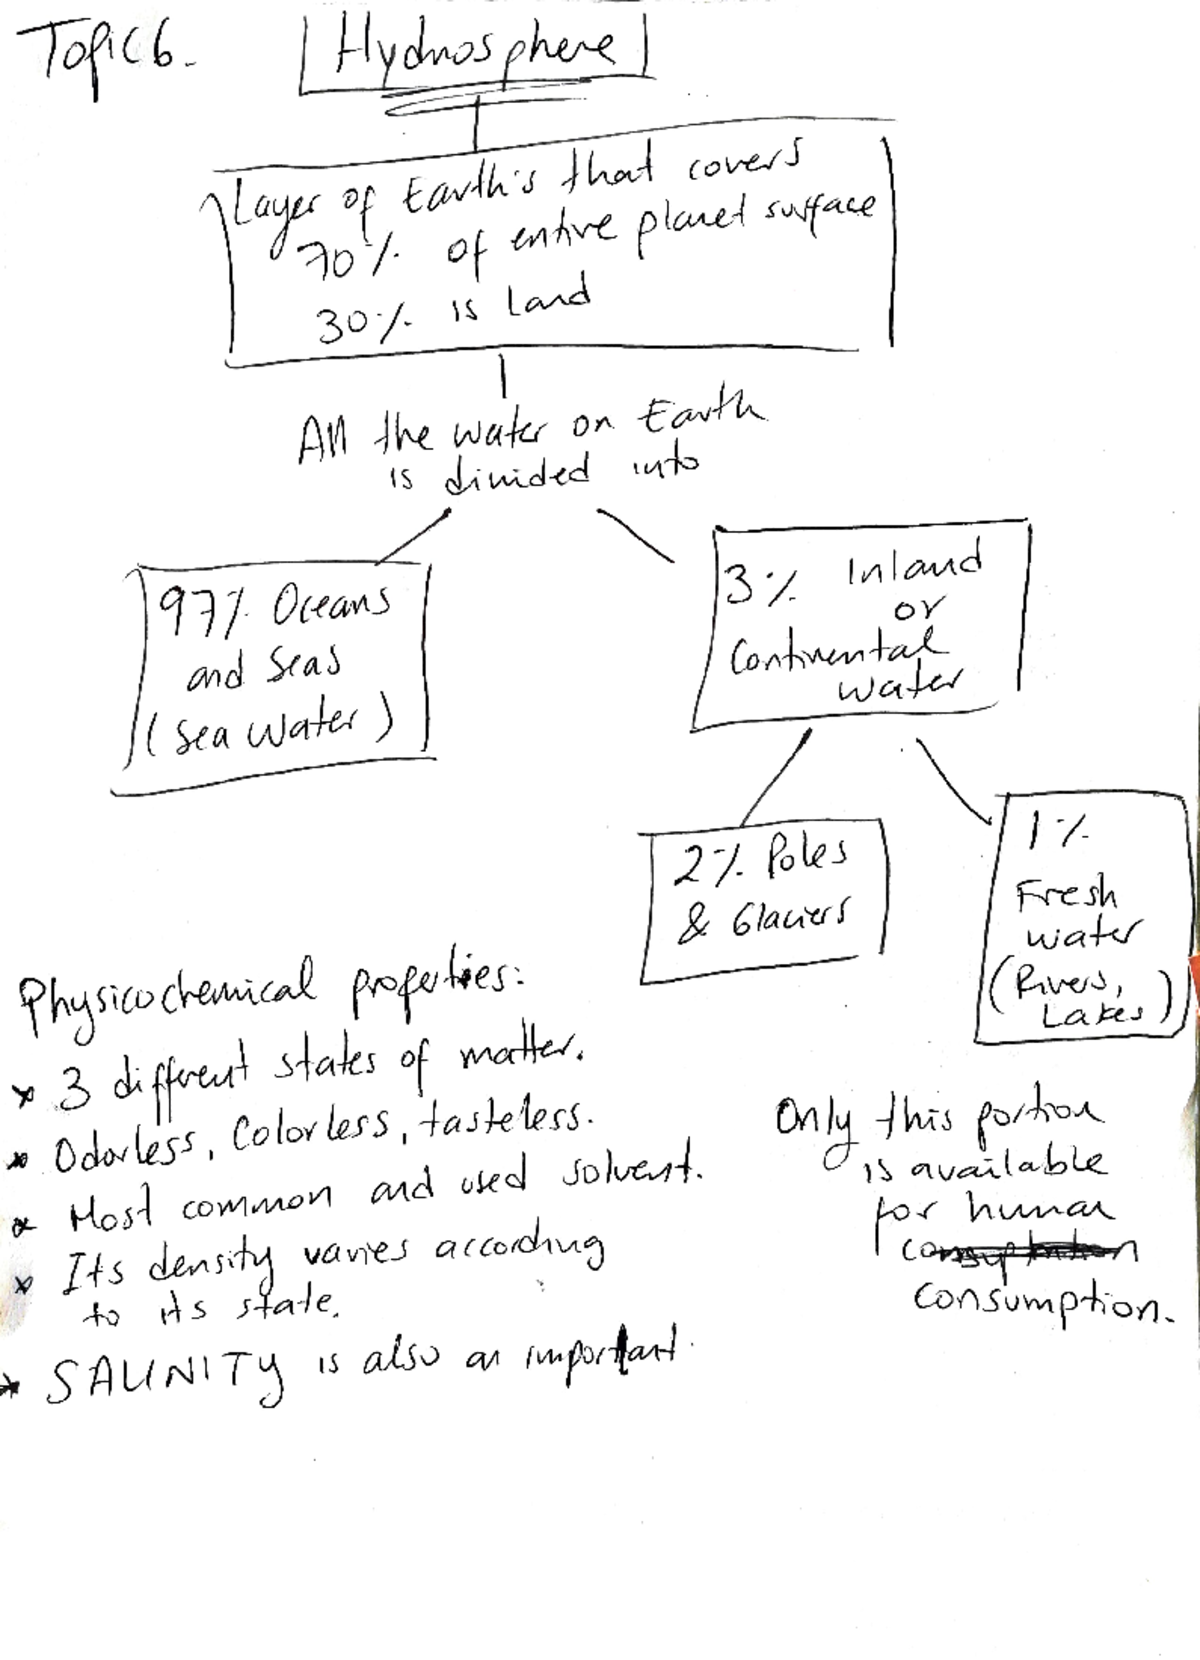 Topic 6.
Hydrosphere
Layer of Earth's that covers
70% of entire planet surface
30% is Land
All the water on Earth
is divided into
97% Oceans
and Seas
(Sea Water)
3% Inland
or
Continental
water
2% Poles
& Glaciers
1%
Fresh
water
(Rivers,
Lakes)
Only this portion
is available
for human
consumption.
Physicochemical properties:
* 3 different states of matter.
* Odorless, Colorless, tasteless.
* Most common and used solvent.
* Its density varies according
to its state.
* SALINITY is also an important.